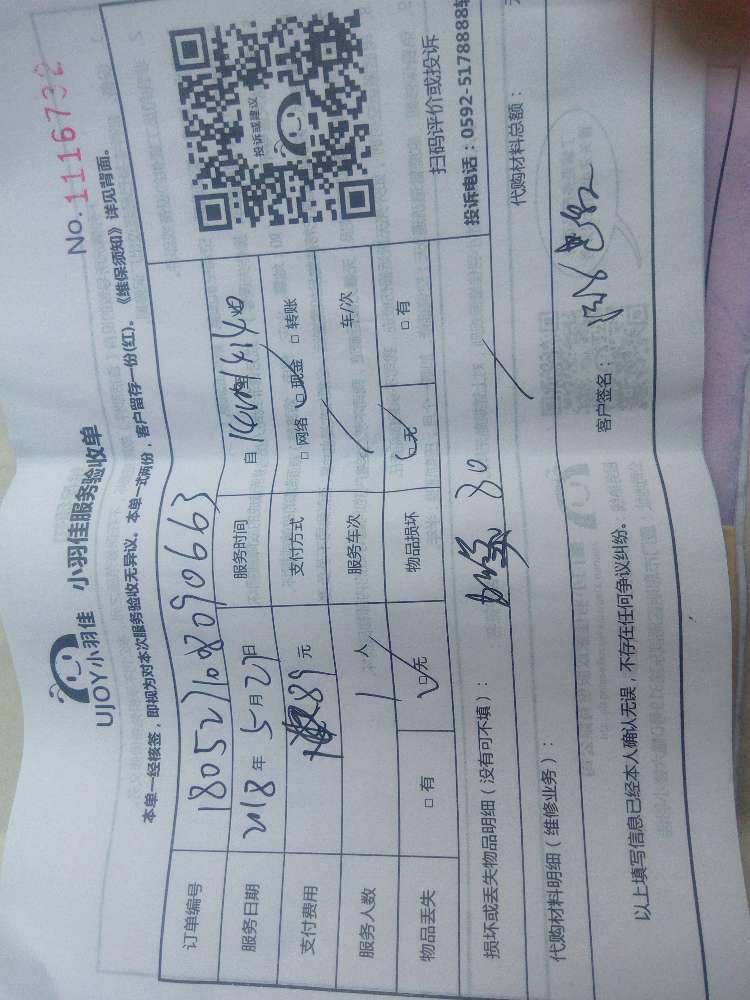 No.1116732
UJOY小羽佳 小羽佳服务验收单
本单一经核签，即视为对本次服务验收无异议。本单一式两份，客户留存一份(红)。《维保须知》详见背面。
订单编号 180527108090663
服务日期 2018年5月27日 服务时间 自
支付费用 89元 支付方式 □网络 □现金 □转账
服务人数 1人 服务车次 / 车/次
物品丢失 □有 □无 物品损坏 □无 □有
投诉或建议
扫码评价或投诉
投诉电话：0592-5178888转
损坏或丢失物品明细（没有可不填）： 80
代购材料明细（维修业务）： / 代购材料总额：
以上填写信息已经本人确认无误，不存在任何争议纠纷。 客户签名：